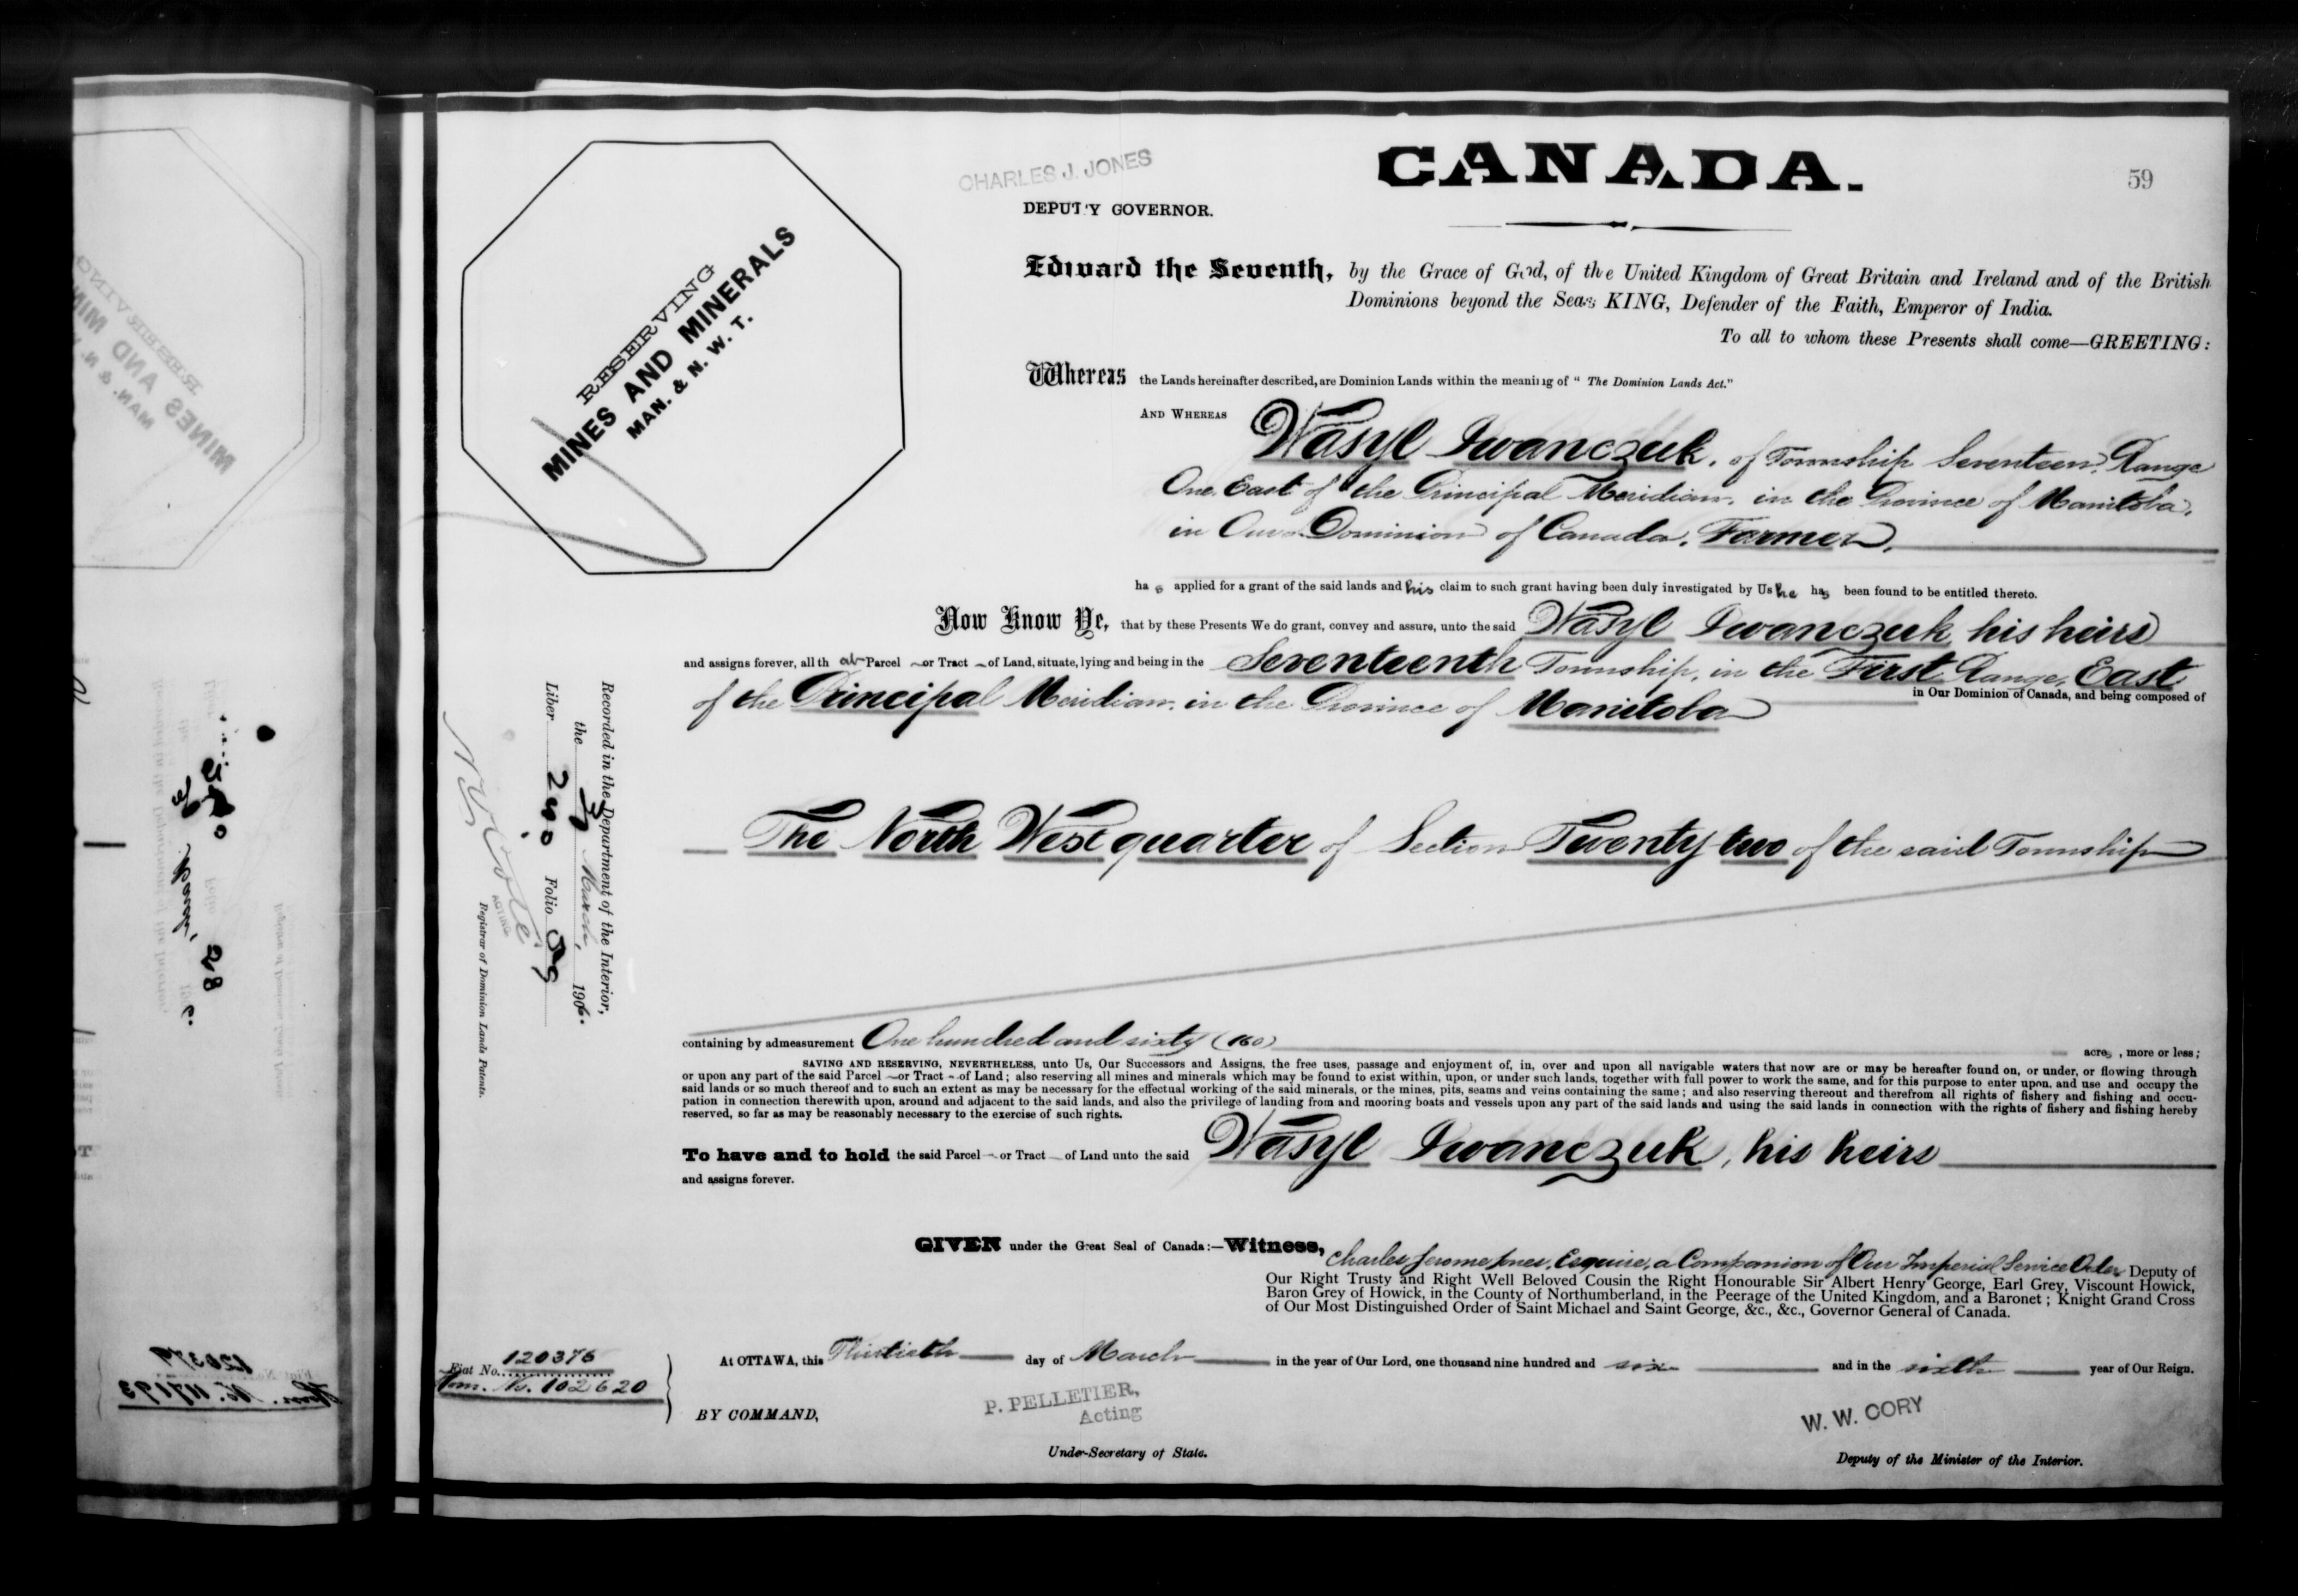 CHARLES J. JONES
DEPUTY GOVERNOR.
CANADA.
59
RESERVING
MINES AND MINERALS
MAN. & N. W. T.
Edward the Seventh, by the Grace of God, of the United Kingdom of Great Britain and Ireland and of the British
Dominions beyond the Seas KING, Defender of the Faith, Emperor of India.
To all to whom these Presents shall come—GREETING:
Whereas the Lands hereinafter described, are Dominion Lands within the meaning of "The Dominion Lands Act."
AND WHEREAS Wasyl Iwanczuk, of Township Seventeen, Range
One, East of the Principal Meridian, in the Province of Manitoba,
in Our Dominion of Canada, Farmer,
has applied for a grant of the said lands and his claim to such grant having been duly investigated by Us he has been found to be entitled thereto.
Now Know Ye, that by these Presents We do grant, convey and assure, unto the said Wasyl Iwanczuk his heirs
and assigns forever, all that Parcel or Tract of Land, situate, lying and being in the Seventeenth Township, in the First Range, East
of the Principal Meridian, in the Province of Manitoba in Our Dominion of Canada, and being composed of
The North West quarter of Section Twenty-two of the said Township
Recorded in the Department of the Interior,
the March, 1906.
Liber 240 Folio 59
ACTING
Registrar of Dominion Lands Patents.
containing by admeasurement One hundred and sixty (160) acres, more or less;
SAVING AND RESERVING, NEVERTHELESS, unto Us, Our Successors and Assigns, the free uses, passage and enjoyment of, in, over and upon all navigable waters that now are or may be hereafter found on, or under, or flowing through
or upon any part of the said Parcel or Tract of Land; also reserving all mines and minerals which may be found to exist within, upon, or under such lands, together with full power to work the same, and for this purpose to enter upon, and use and occupy the
said lands or so much thereof and to such an extent as may be necessary for the effectual working of the said minerals, or the mines, pits, seams and veins containing the same; and also reserving thereout and therefrom all rights of fishery and fishing and occu-
pation in connection therewith upon, around and adjacent to the said lands, and also the privilege of landing from and mooring boats and vessels upon any part of the said lands and using the said lands in connection with the rights of fishery and fishing hereby
reserved, so far as may be reasonably necessary to the exercise of such rights.
To have and to hold the said Parcel or Tract of Land unto the said Wasyl Iwanczuk, his heirs
and assigns forever.
GIVEN under the Great Seal of Canada:—Witness, Charles Jerome Jones, Esquire, a Companion of Our Imperial Service Order Deputy of
Our Right Trusty and Right Well Beloved Cousin the Right Honourable Sir Albert Henry George, Earl Grey, Viscount Howick,
Baron Grey of Howick, in the County of Northumberland, in the Peerage of the United Kingdom, and a Baronet; Knight Grand Cross
of Our Most Distinguished Order of Saint Michael and Saint George, &c., &c., Governor General of Canada.
At OTTAWA, this Thirtieth day of March in the year of Our Lord, one thousand nine hundred and six and in the sixth year of Our Reign.
Fiat No. 120376
Hom. No. 102620
BY COMMAND,
P. PELLETIER,
Acting
Under-Secretary of State.
W. W. CORY
Deputy of the Minister of the Interior.